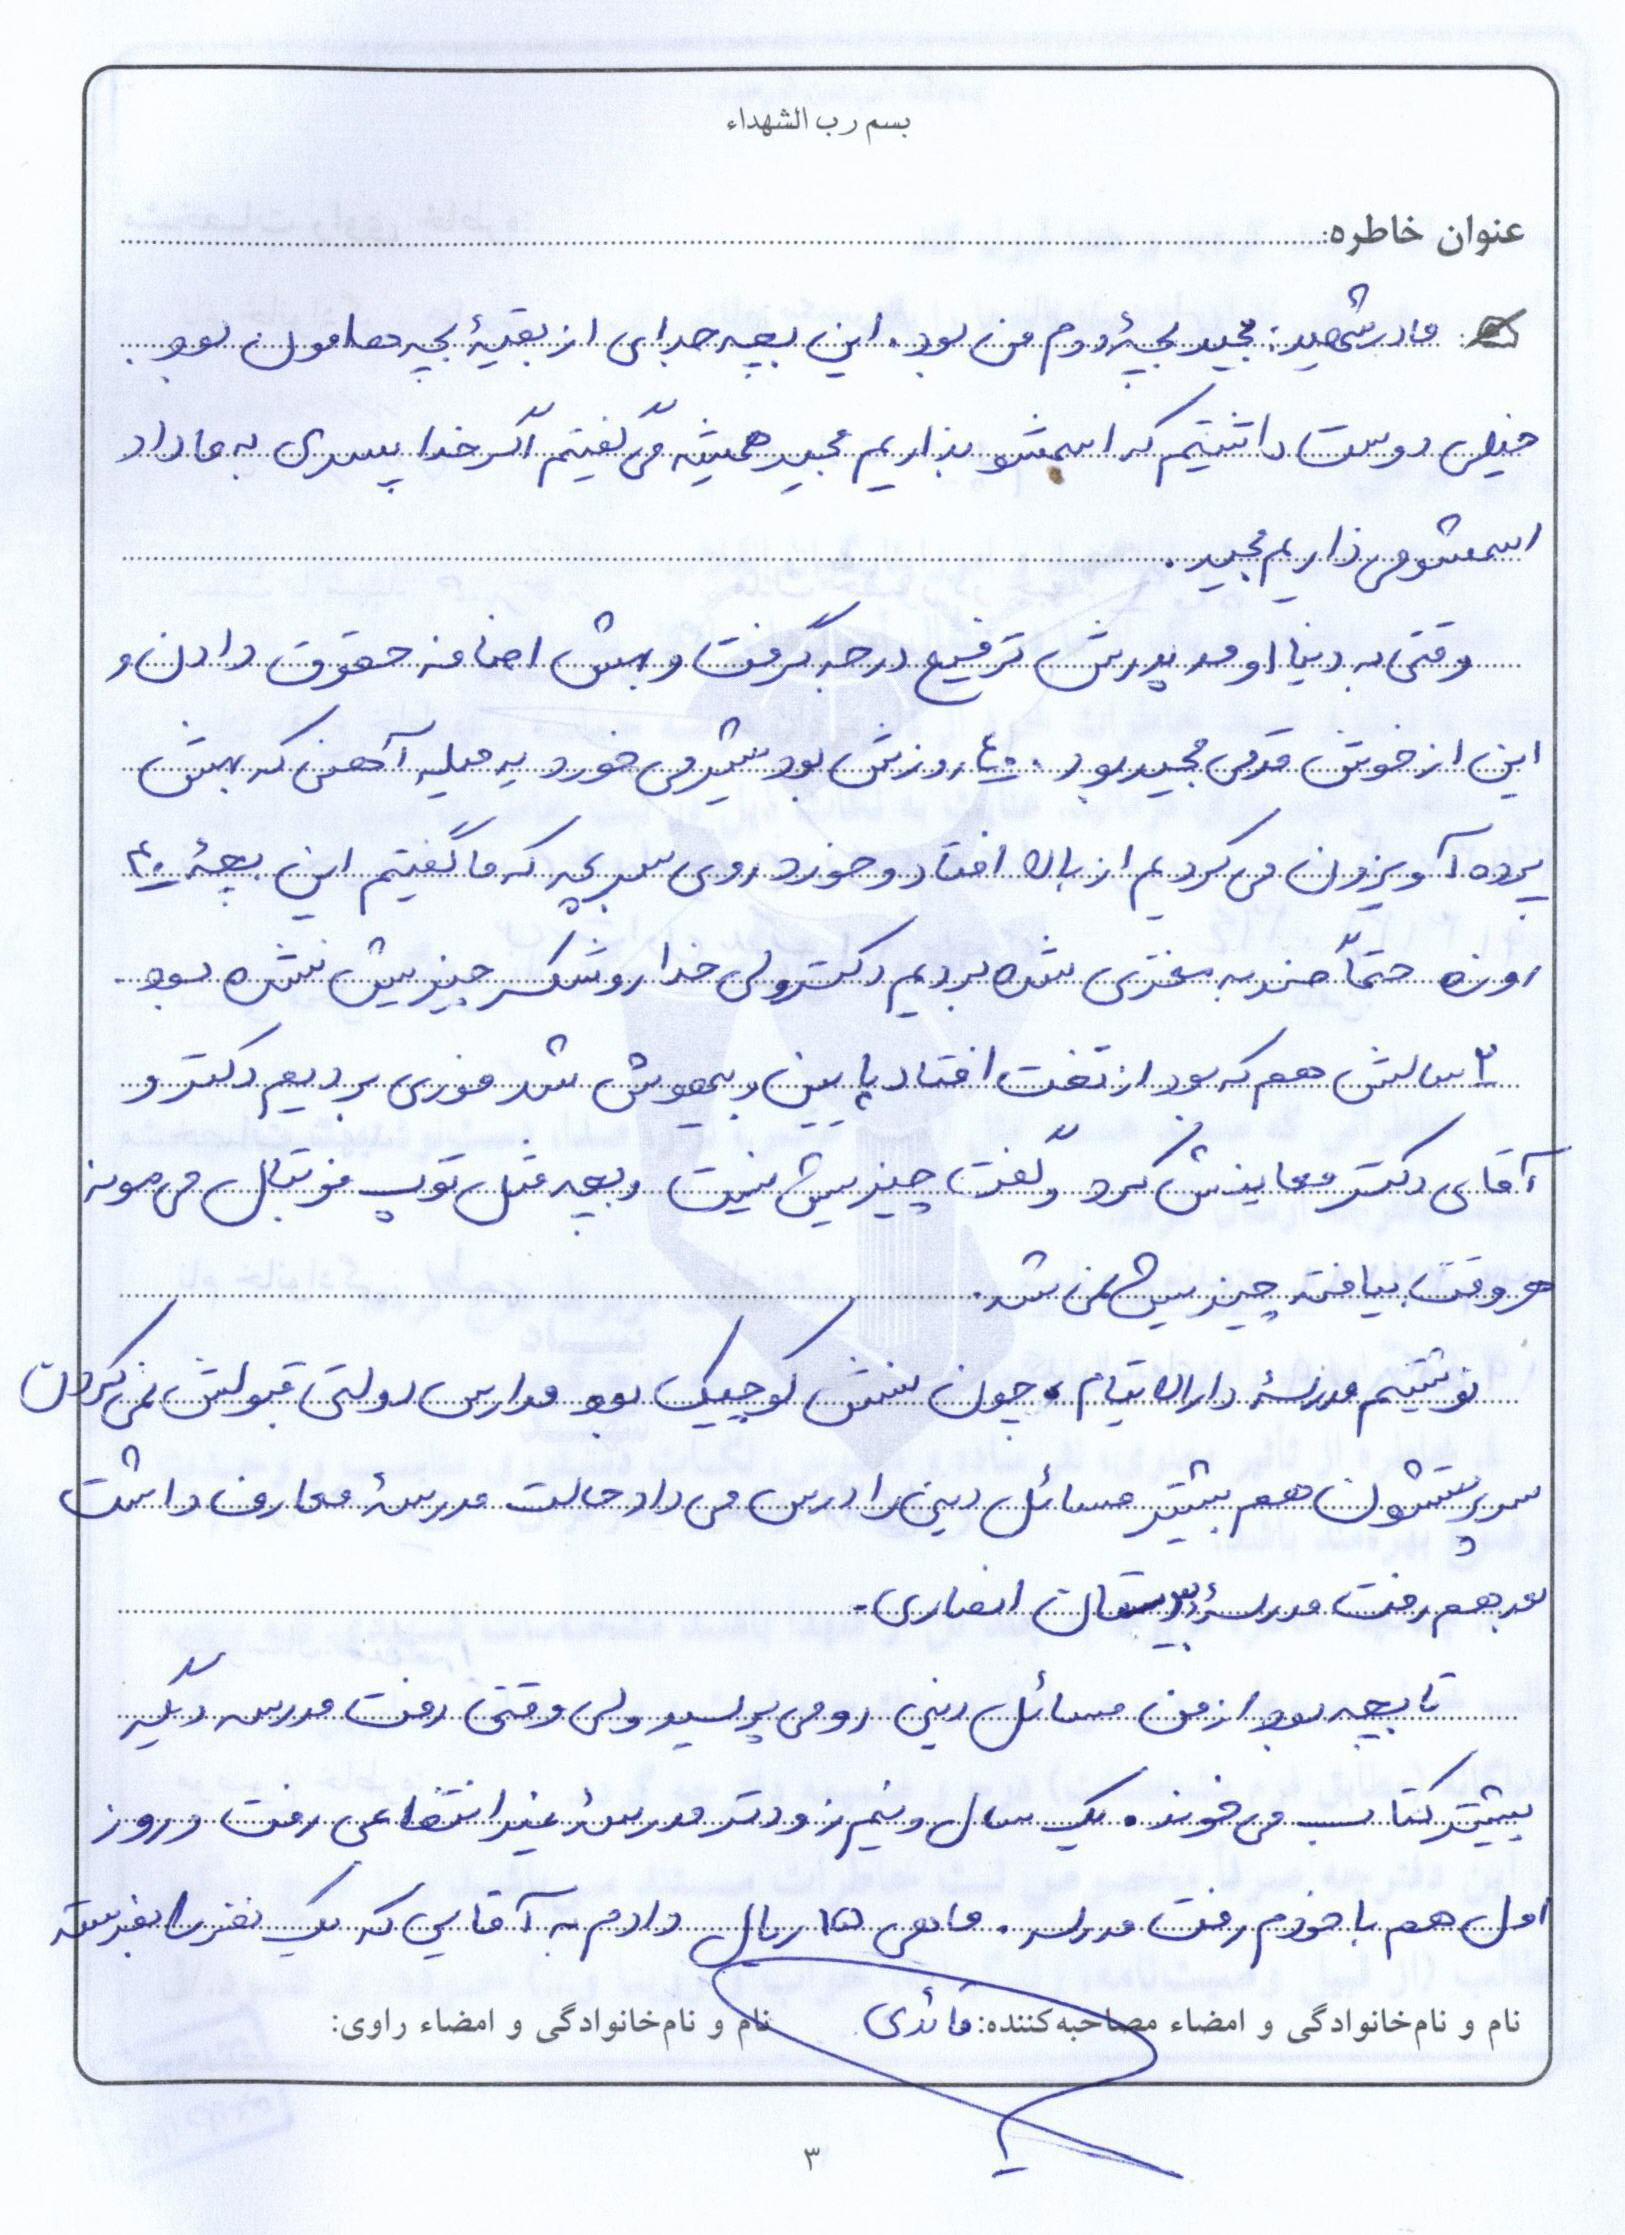 بسم رب الشهداء
عنوان خاطره:
مادر شهید: مجید بچۀ دوم من بود. این بچه جدای از بقیۀ بچه هامون بود.
خیلی دوست داشتیم که اسمشو بذاریم مجید همیشه می گفتیم اگر خدا پسری به ما داد
اسمشو می ذاریم مجید.
وقتی به دنیا اومد پدرش ترفیع درجه گرفت و بهش اضافه حقوق دادن و
این از خوش قدمی مجید بود. ۴۰ روزش بود شیر می خورد یه میله آهنی که بهش
پرده آویزون می کردیم از بالا افتاد و خورد روی سر بچه که ما گفتیم این بچۀ ۴۰
روزه حتماً ضربه مغزی شده بردیم دکتر ولی خدا رو شکر چیزیش نشده بود.
۲ سالش هم که بود از تخت افتاد پایین و بیهوش شد فوری بردیم دکتر و
آقای دکتر معاینش کرد و گفت چیزیش نیست و بچه مثل توپ فوتبال می مونه
هر وقت بیافته چیزیش نمی شد.
نوشتیم مدرسۀ دارالایتام، چون سنش کوچیک بود مدارس دولتی قبولش نمی کردن
سرپرستشون هم بیشتر مسائل دینی را درس می داد حالت مدرسۀ معارف داشت
بعد هم رفت مدرسۀ انصاری.
تا بچه بود از من مسائل دینی رو می پرسید ولی وقتی رفت مدرسه دیگر
بیشتر کتاب می خوند. یک سال و نیم زودتر مدرسۀ غیرانتفاعی رفت و روز
اول هم با خودم رفت مدرسه. ماهی ۱۵ ریال دادم به آقایی که یک نفر را بفرسته
نام و نام‌خانوادگی و امضاء مصاحبه‌کننده: قائدی
نام و نام‌خانوادگی و امضاء راوی:
۳